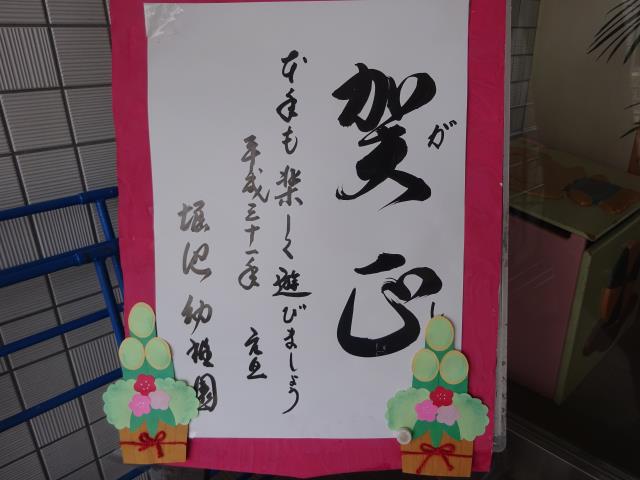 賀正
がし
本年も楽しく遊びましょう
平成三十一年 元旦
堀池幼稚園